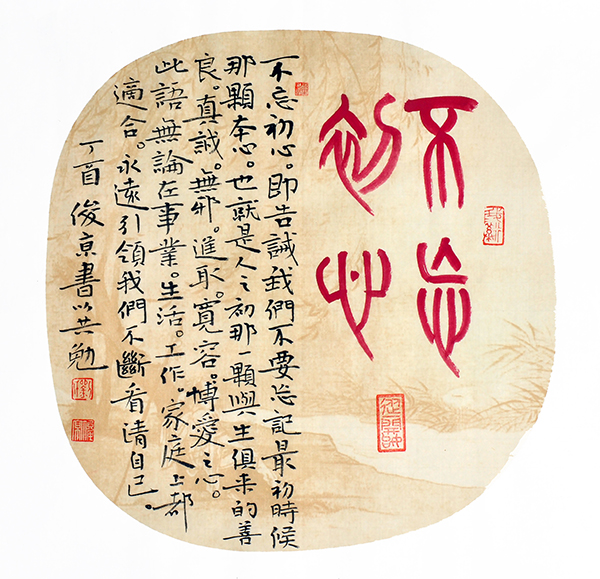 不忘
初心
不忘初心。即告誡我們不要忘記最初時候
那顆本心。也就是人之初那一顆與生俱来的善
良。真誠。無邪。進取。寬容。博愛之心。
此語無論在事業。生活。工作。家庭上都
適合。永遠引領我們不斷看清自己。
丁酉 俊京書以共勉